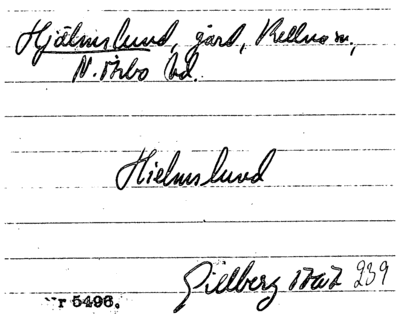 Hjälmslund, gård, Kellna sn,
N. Åsbo hd.
Hielmslund
Gillberg 1767 239
r 5496.